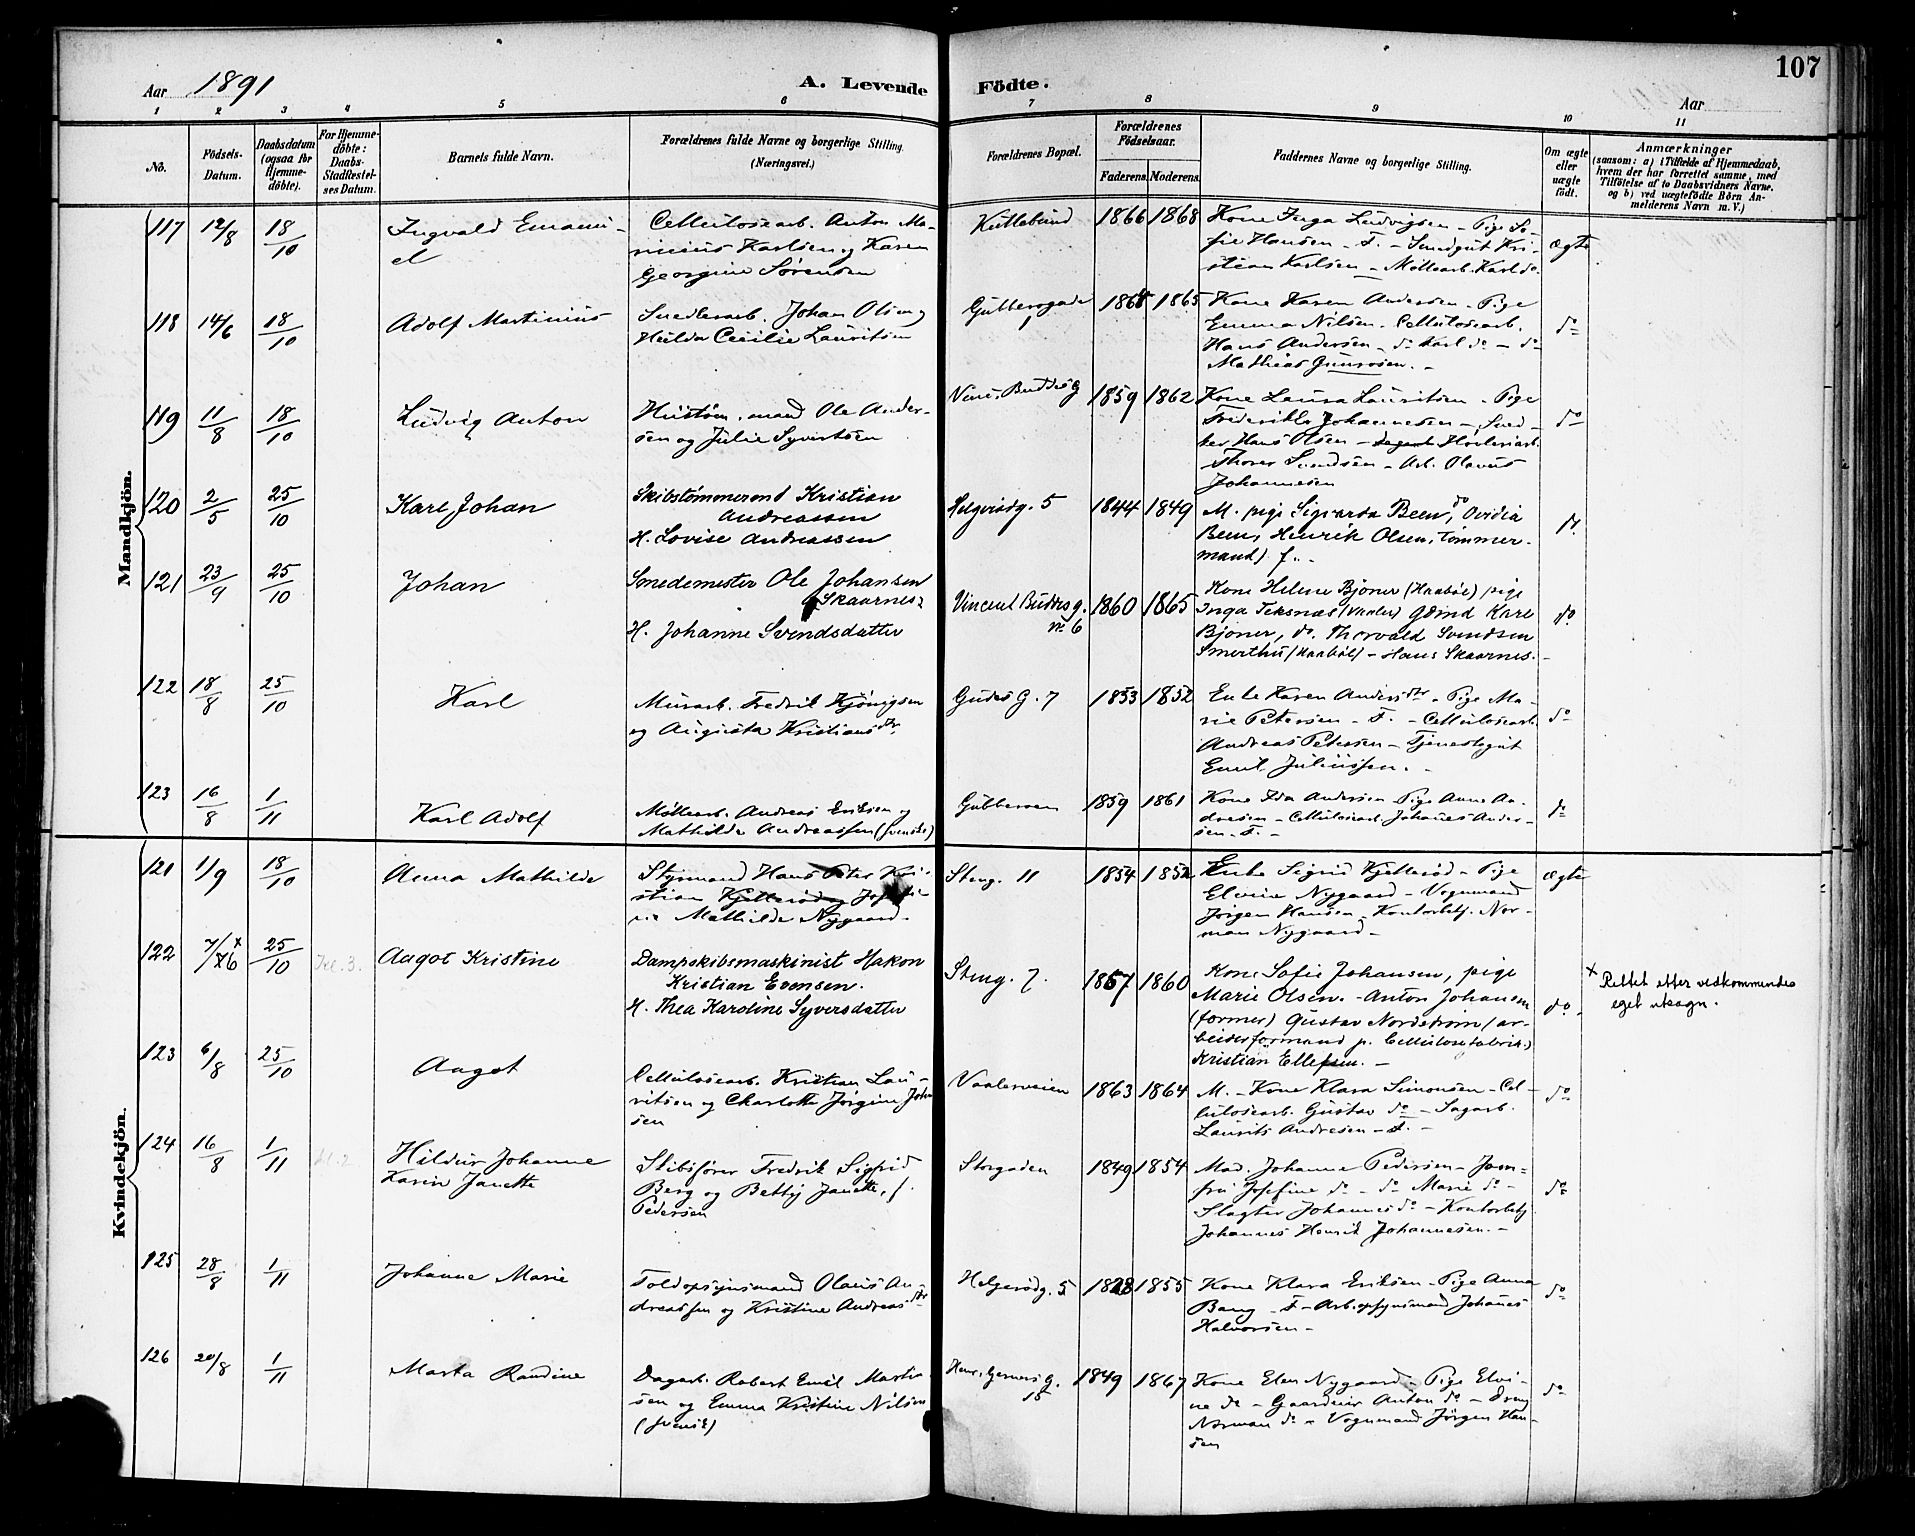 107
Aar 1891
A. Levende
Födte.
Aar
1 2 3 4 5 6 7 8 9 10 11
No.
Födsels-Datum.
Daabsdatum (ogsaa for Hjemmedöbte).
For Hjemmedöbte: Daabs-Stadfæstelses Datum.
Barnets fulde Navn.
Forældrenes fulde Navne og borgerlige Stilling. (Næringsvei.)
Forældrenes Bopæl.
Forældrenes Födselsaar.
Faderens. Moderens.
Faddernes Navne og borgerlige Stilling.
Om ægte eller uægte födt.
Anmærkninger
(saasom: a) i Tilfælde af Hjemmedaab, hvem der har forrettet samme, med Tilföielse af to Daabsvidners Navne, og b) ved uægtefödte Börn Anmelderens Navn m. V.)
Mandkjön.
117 12/8 18/10 Ingvald Emanuel
Cellulosearb. Anton Marinius Karlsen og Karen Georgine Sørensen
1866 1868
Kone Inga Ludvigsen – Pige Sofie Hansen – F. – Kristian Karlsen – Møllearb. Karl do
ægte
118 14/6 18/10 Adolf Martinius
Johan Olsen og Hulda Cecilie Lauritsen
1 1864 1865
Kone Karen Andersen – Pige Emma Nilsen – Cellulosearb. Hans Andersen – do Karl do – do Mathias
do
119 11/8 18/10 Ludvig Anton
Ole Andersen og Julie Syvertsen
1859 1862
Kone Laura Lauritsen – Pige Fredrikke Johannesen – Hans Olsen – Høvleriarb. Thorer Svendsen – Arb. Olavus Johannesen
do
120 2/5 25/10 Karl Johan
Skibstømmermand Kristian Andreassen
H. Lovise Andreassen
Helgerødg. 5 1844 1849
M. pige Sigvarda Beem, do Ovidia Beem, Henrik Olsen, tømmermand) f.
121 23/9 25/10 Johan
Smedemester Ole Johansen Skaarnes
H. Johanne Svendsdatter
Vincent Buddes g. no 6 1860 1865
Kone Helene Bjøner (Haabøl) pige Inga Teksnæs (Vaaler) Karl Bjøner, do. Thorvald Svendsen Smerthu (Haabøl) – Hans Skaarnes.
do
122 18/8 25/10 Karl
Murarb. Fredrik Kjönigsen og Augusta Kristiansdtr
Gudes G. 7 1853 1852
Enke Karen Andersdtr – Pige Marie Petersen – F. – Cellulosearb. Andreas Petersen – Tjenestegut Emil Juliussen. –
do
123 16/8 1/11 Karl Adolf
Møllearb. Andreas Eriksen og Mathilde Andreassen (svenske)
1859 1861
Kone Ida Andersen – Pige Anne Andresen – Cellulosearb. Johannes Andersen – F. –
do
Kvindekjön.
121 1/9 18/10 Anna Mathilde
Styrmand Hans Peter Kristian Kjellerød og Josefine Mathilde Nygaard.
Steng. 11 1854 1852
Enke Sigrid Kjellerød – Pige Elvine Nygaard – Vognmand Jörgen Hansen – Kontorbetj. Norman Nygaard –
ægte
122 25/10 Aagot Kristine
Dampskibsmaskinist Hakon Kristian Evensen.
H. Thea Karoline Syversdatter
Steng. 7. 1857 1860
Kone Sofie Johansen, pige Marie Olsen. – Anton Johansen (former) Gustav Nordstrøm (arbeiderformand p. Cellulosefabrik.) Kristian Ellefsen. –
do
x Rettet etter vedkommendes eget utsagn.
123 6/8 25/10 Aagot
Cellulosearb. Kristian Lauritsen og Charlotte Jørgine Johnsen
Vaalerveien 1863 1864
M. – Kone Klara Simonsen – Cellulosearb. Gustav do – Sagarb. Laurits Andresen – F. –
do
124 16/8 1/11 Hildur Johanne Karin Janette
Skibsfører Fredrik Sigfrid Berg og Betty Janette, f. Pedersen
Storgaden 1849 1854
Mad. Johanne Pedersen – Jomfru Josefine do – do Marie do – Slagter Johannes do – Kontorbetj. Johannes Henrik Johannesen. –
do
125 28/8 1/11 Johanne Marie
Toldopsynsmand Olaus Andreassen og Kristine Andreasdtr
Helgerødg. 5 1855
Kone Klara Eriksen – Pige Anna Bang – F – Arb.opsynsmand Johannes Halvorsen –
do
126 20/8 1/11 Marta Randine
Dagarb. Robert Emil Martinsen og Emma Kristine Nilsen (svensk)
15 1849 1867
Kone Elen Nygaard – Pige Elvine do – Anton do – Dreng Norman do – Vognmand Jörgen Hansen
do